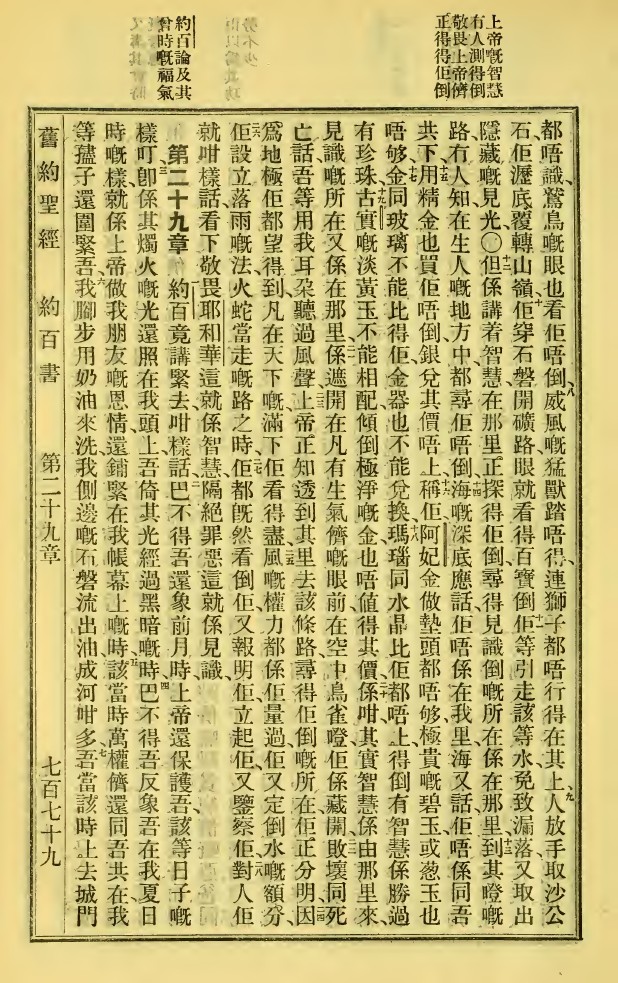 上帝嘅智慧
有人測得倒
敬畏上帝儕
正得得佢倒
約百論及其
當時嘅福氣
都唔識鷲鳥嘅眼也看佢唔倒八威風嘅猛獸踏唔得連獅子都唔行得在其上九人放手取沙公
石佢瀝底覆轉山嶺十佢穿石磐開礦路眼就看得百寶倒十一佢等引走該等水免致漏落又取出
隱藏嘅見光〇十二但係講着智慧在那里正探得佢倒尋得見識倒嘅所在係在那里十三到其噔嘅
路冇人知在生人嘅地方中都尋佢唔倒十四海嘅深底應話佢唔係在我里海又話佢唔係同吾
共下十五用精金也買佢唔倒銀兌其價唔上稱十六佢阿妃金做墊頭都唔够極貴嘅碧玉或葱玉也
唔够十七金同玻璃不能比得佢金器也不能兌換十八瑪瑙同水晶比佢都唔上得倒有智慧係勝過
有珍珠十九古實嘅淡黃玉不能相配傾倒極淨嘅金也唔值得其價二十係咁其實智慧係由那里來
見識嘅所在又係在那里二一係遮開在凡有生氣儕嘅眼前在空中鳥雀噔佢係藏開二二敗壞同死
亡話吾等用我耳朶聽過風聲二三上帝正知透到其里去該條路尋得佢倒嘅所在佢正分明二四因
爲地極佢都望得到凡在天下嘅滿下佢看得盡二五風嘅權力都係佢量過佢又定倒水嘅額分
二六佢設立落雨嘅法火蛇當走嘅路之時二七佢都既然看倒佢又報明佢立起佢又鑒察佢二八對人佢
就咁樣話看下敬畏耶和華這就係智慧隔絕罪惡這就係見識
第二十九章 約百竟講緊去咁樣話二巴不得吾還象前月時上帝還保護吾該等日子嘅
樣三叮卽係其燭火嘅光還照在我頭上吾倚其光經過黑暗嘅時四巴不得吾反象吾在我夏日
時嘅樣就係上帝做我朋友嘅恩情還鋪緊在我帳幕上嘅時五該當時萬權儕還同吾共在我
等孻子還圍緊吾六我腳步用奶油來洗我側邊嘅石磐流出油成河咁多七吾當該時上去城門
舊約聖經 約百書 第二十九章 七百七十九